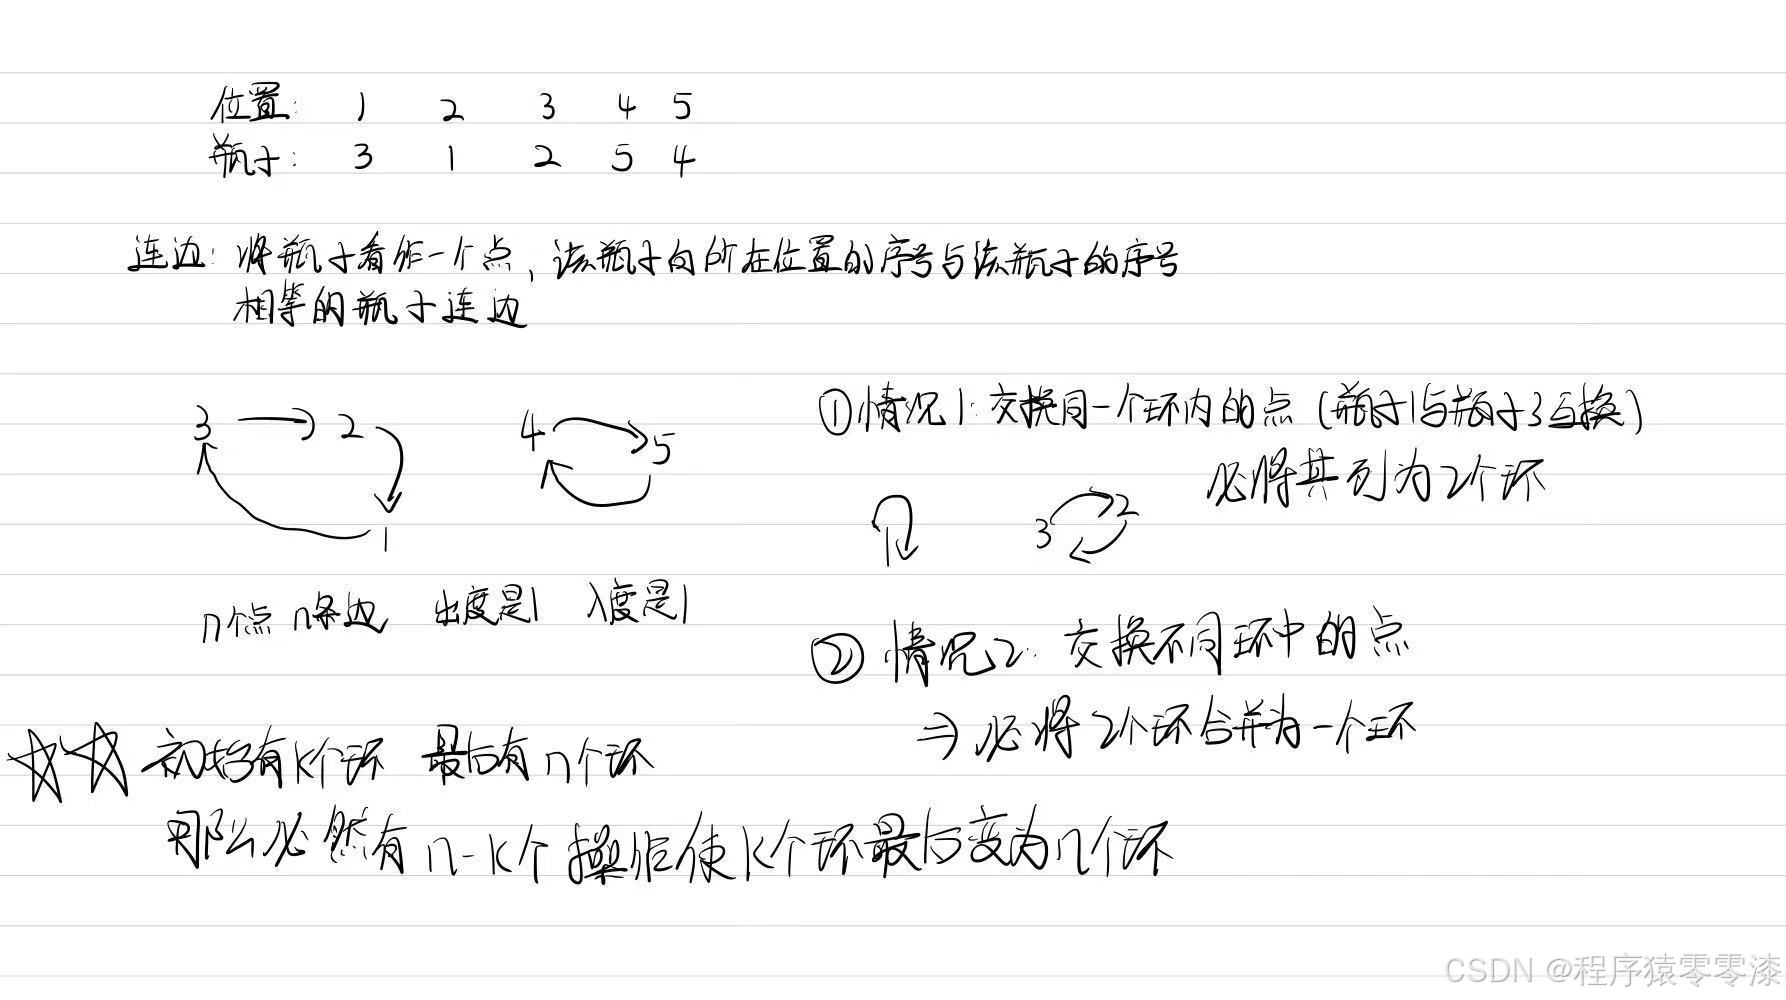 位置: 1 2 3 4 5
瓶子: 3 1 2 5 4
连边: 将瓶子看作一个点, 该瓶子向所在位置的序号与该瓶子的序号
相等的瓶子连边
3 2 1
4 5
n个点 n条边 出度是1 入度是1
①情况1: 交换同一个环内的点 (瓶子1与瓶子3互换)
必将其列为2个环
1 3 2
② 情况2: 交换不同环中的点
⇒ 必将2个环合并为一个环
☆☆ 初始有k个环 最后有n个环
那么必然有 n-k个 操作使k个环最后变为n个环
CSDN @程序猿零零漆